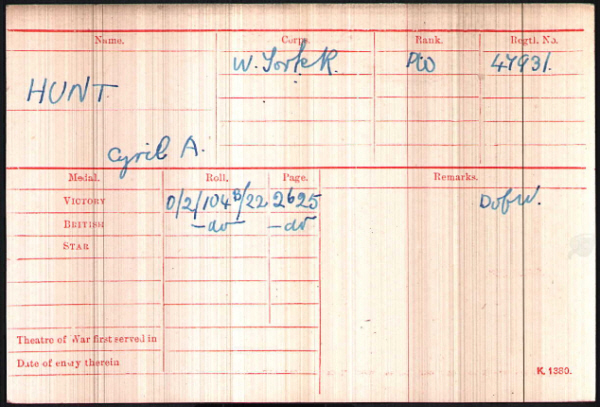 Name. Corps. Rank. Regtl. No.
HUNT W. York R. Pte 47931.
Cyril A.
Medal. Roll. Page. Remarks.
VICTORY O/2/104 B/22 2625 D of W.
BRITISH -do- -do-
STAR
Theatre of War first served in
Date of entry therein
K. 1380.